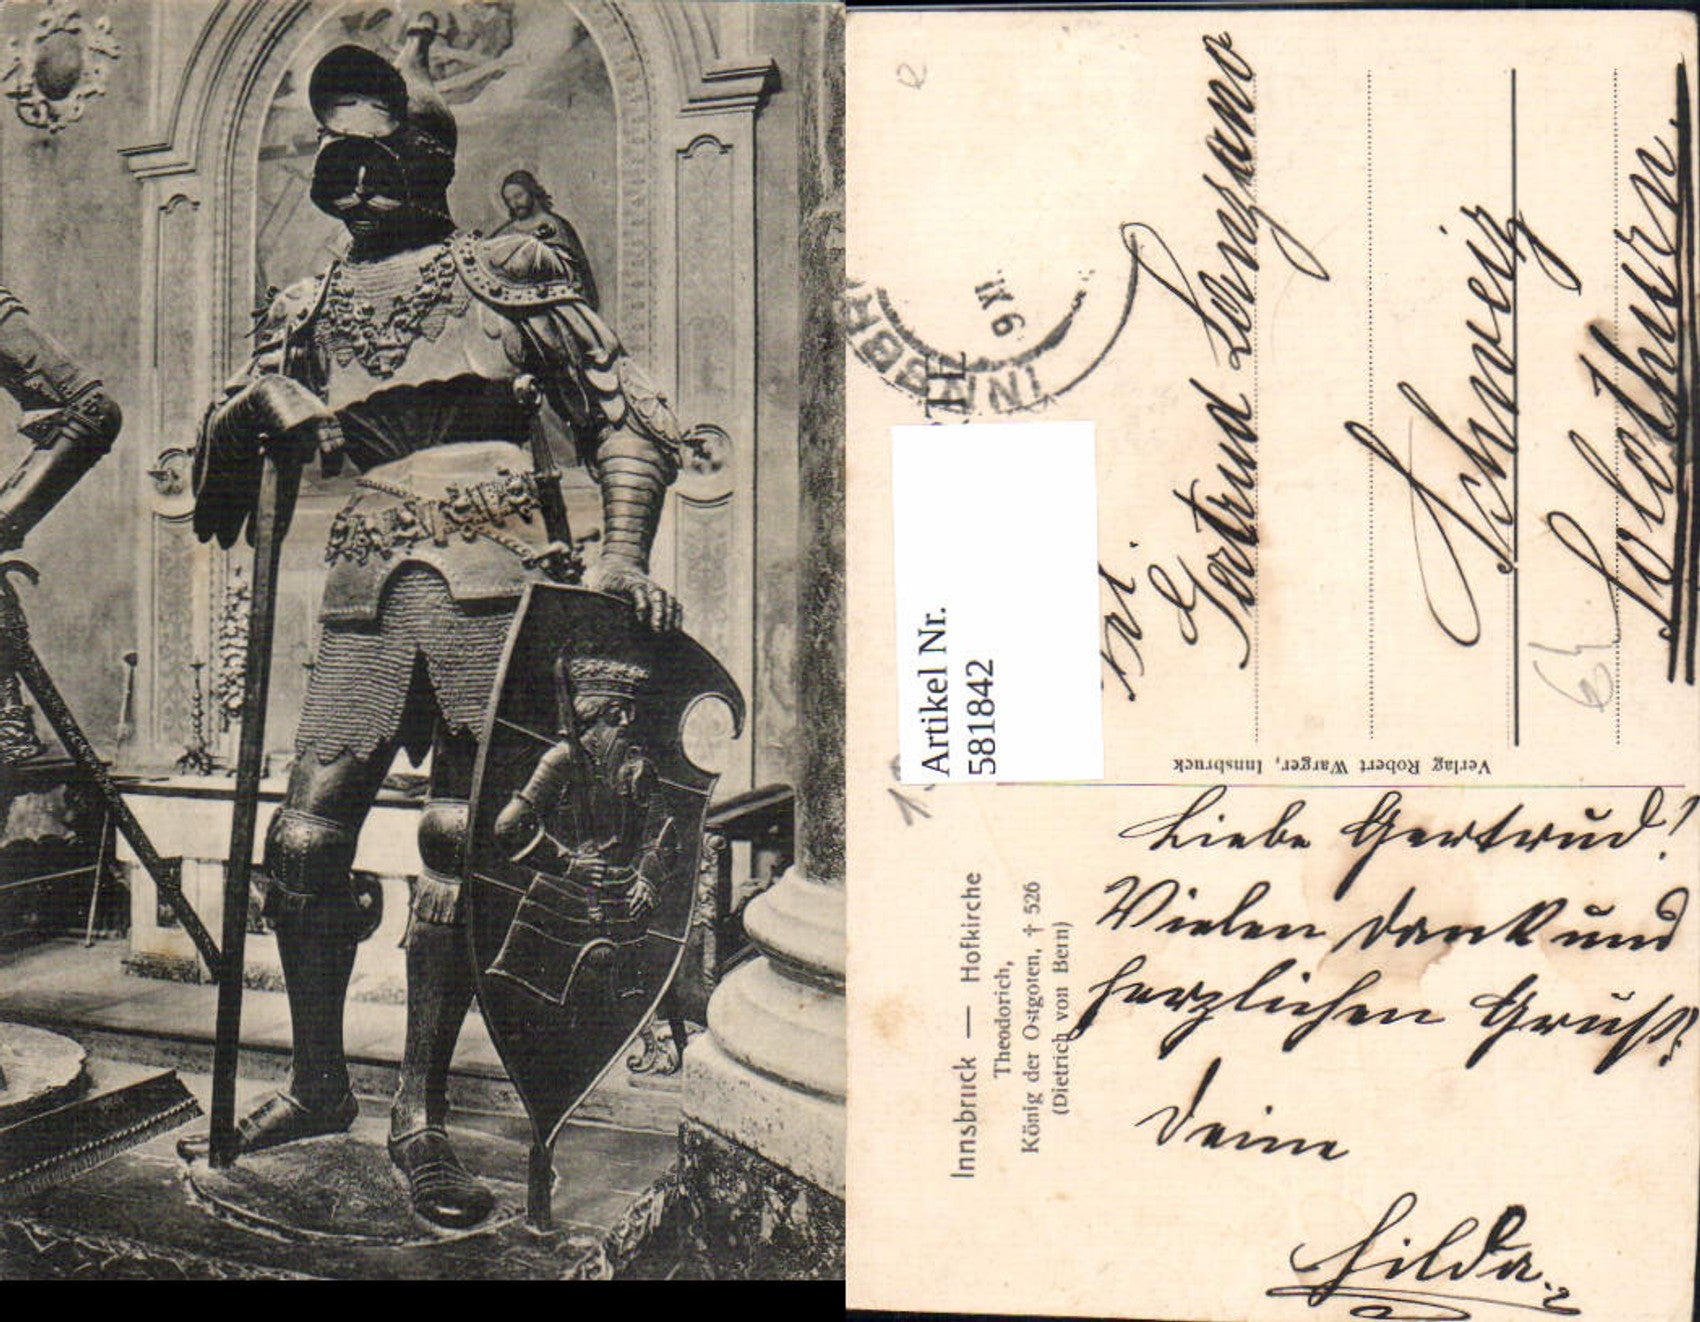 Innsbruck — Hofkirche
Theodorich,
König der Ostgoten, † 526
(Dietrich von Bern)
Liebe Gertrud!
Vielen Dank und
herzlichen Gruss.
Deine
Hilda.
Verlag Robert Warger, Innsbruck
INNSBR
9 XI.
TE
Artikel Nr.
581842
Frl.
Gertrud
Schweiz
Solothurn.